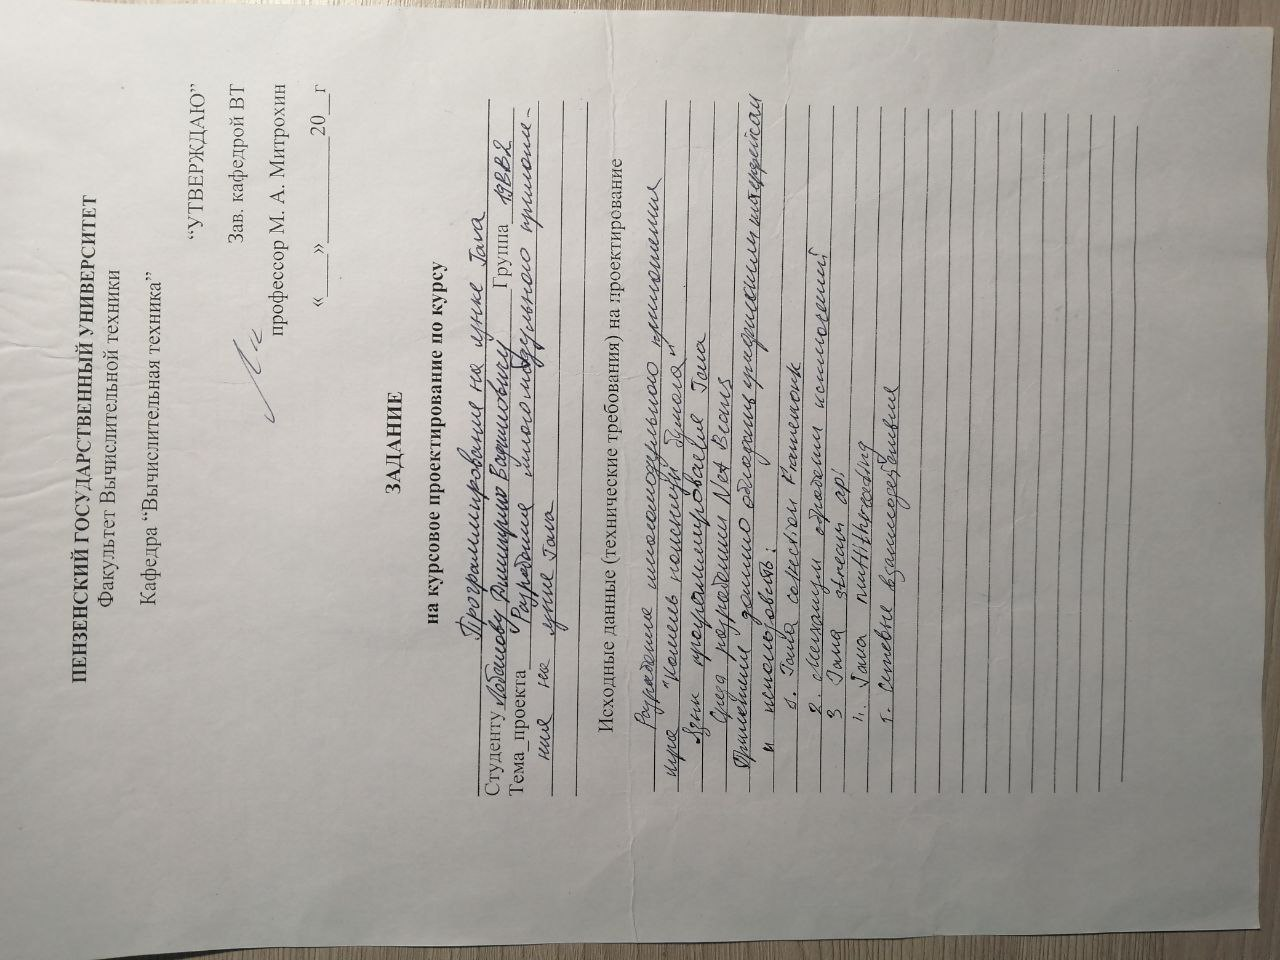 ПЕНЗЕНСКИЙ ГОСУДАРСТВЕННЫЙ УНИВЕРСИТЕТ
Факультет Вычислительной техники
Кафедра “Вычислительная техника”
“УТВЕРЖДАЮ”
Зав. кафедрой ВТ
профессор М. А. Митрохин
«___»____________20__г
ЗАДАНИЕ
на курсовое проектирование по курсу
Программирование на языке Java
Студенту Лобанову Владимиру Вадимовичу Группа 19ВВ2
Тема_проекта Разработка многомодульного приложе-
ния на языке Java
Исходные данные (технические требования) на проектирование
Разработка многомодульного приложения
игра "Камень ножницы бумага"
Язык программирования Java
Среда разработки Net Beans
Приложение должно обладать графическим интерфейсом
и использовать:
1. Java collection Framework
2. Механизм обработки исключений
3 Java stream api
4. Java multithreading
5. Сетевые взаимодействия